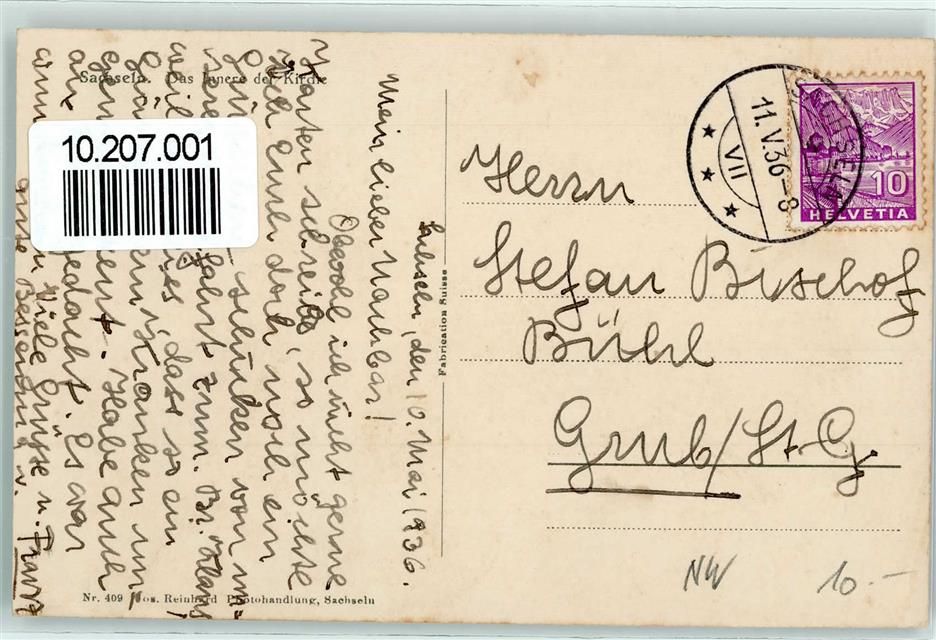 Sachseln. Das Innere der Kirche
10.207.001
Sachseln, den 10. Mai 1936.
Mein lieber Nachbar!
Obwohl ich nicht gerne
Karten schreibe, so möchte
ich Euch doch noch ein
schicken von un-
serer fahrt zum. Br. Klaus
weil es, dass so ein
Kranken um
Habe auch
an gedacht. Es war
Viele Grüsse u.
gute Besserung v. Franz
Fabrication Suisse
Nr. 409 Jos. Reinhard Photohandlung, Sachseln
11.V.36-8
VII
10
HELVETIA
Herrn
Stefan Bischof
Bühl
Grub/St. G.
NW
10.-